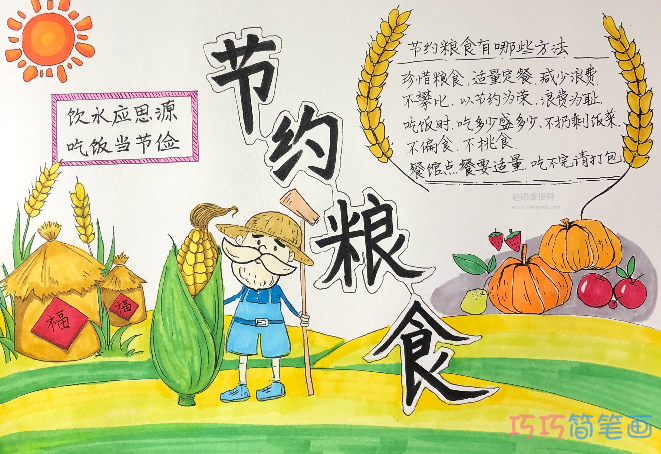 节约粮食
饮水应思源
吃饭当节俭
节约粮食有哪些方法
珍惜粮食、适量定餐、减少浪费
不攀比、以节约为荣、浪费为耻
吃饭时、吃多少盛多少、不扔剩饭菜
不偏食、不挑食
餐馆点餐要适量、吃不完请打包
福
福
巧巧简笔画